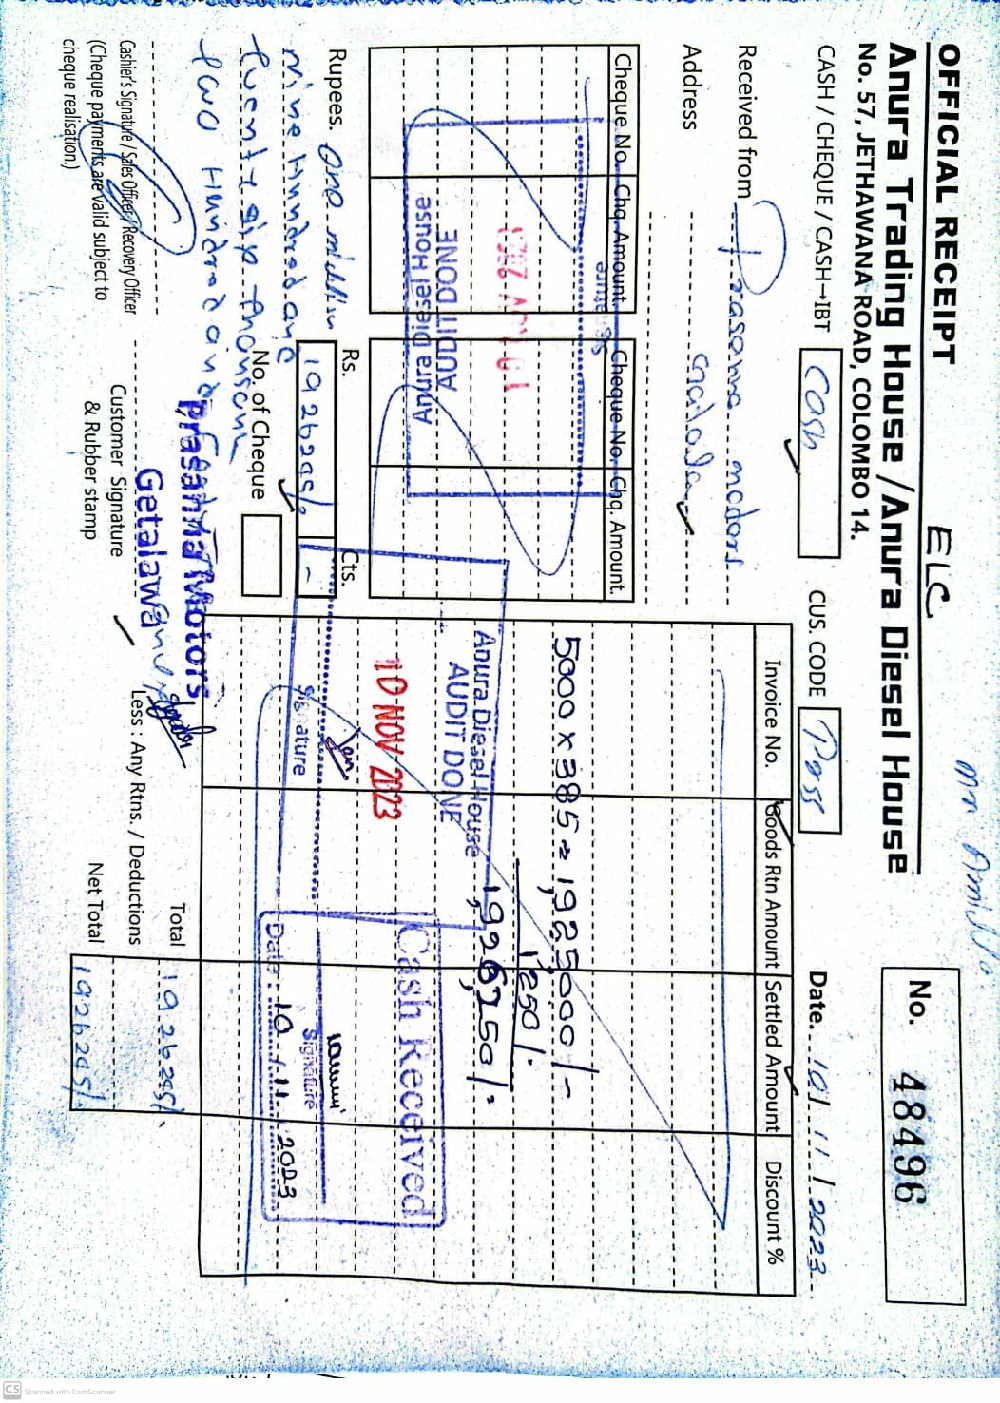 OFFICIAL RECEIPT
ELC
Anura Trading House / Anura Diesel House
No. 57, JETHAWANA ROAD, COLOMBO 14.
No. 48496
CASH / CHEQUE / CASH→IBT
Cash
CUS. CODE
Date. 10 / 11 / 2023
Received from
Address
Cheque No.
Chq. Amount.
Cheque No.
Chq. Amount.
Signature
AUDIT DONE
Anura Diesel House
Rupees. One million
nine hundred and
twenty six thousand
two Hundred and
Rs.
Cts.
No. of Cheque
Invoice No.
Goods Rtn Amount
Settled Amount
Discount %
5000 x 385 = 1,925000/-
1,250/-
1,926,250/-
Anura Diesel House
AUDIT DONE
10 NOV 2023
Signature
Cash Received
Signature
Date: 10.11.2023
Cashier's Signature / Sales Officer / Recovery Officer
(Cheque payments are valid subject to
cheque realisation)
Prasanna Motors
Getalawa
Customer Signature
& Rubber stamp
Total
Less : Any Rtns. / Deductions
Net Total
CS Scanned with CamScanner